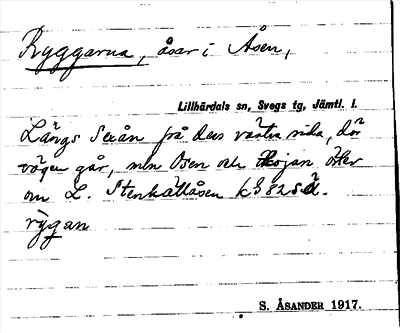 Ryggarna, åsar i Åsen,
Lillhärdals sn, Svegs tg, Jämtl. l.
Längs Sexån på dess västra sida, där
vägen går, mln Åsen och Kojan öster
om L. Stenkällåsen k382sö.
rỳgan
S. ÅSANDER 1917.